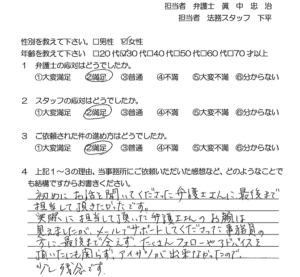 担当者 弁護士 眞中忠治
担当者 法務スタッフ 下平
性別を教えて下さい。□男性 ☑女性
年齢を教えて下さい □20代☑30代□40代□50代□60代□70才以上
1 弁護士の応対はどうでしたか。
①大変満足 ②満足 ③普通 ④不満 ⑤大変不満 ⑥分からない
2 スタッフの応対はどうでしたか。
①大変満足 ②満足 ③普通 ④不満 ⑤大変不満 ⑥分からない
3 ご依頼された件の進め方はどうでしたか。
①大変満足 ②満足 ③普通 ④不満 ⑤大変不満 ⑥分からない
4 上記1～3の理由、当事務所にご依頼いただいた感想など、どのようなことで
も結構ですからお書きください。
初めにお話を聞いてくださった弁護士さんに最後まで
担当して頂きたかったです。
実際に担当して頂いた弁護士さんのお顔は
見えませんが、メールでサポートしてくださった事務員の
方に最後まで会えず、たくさんフォローやアドバイスを
頂いたにも関らず、アイサツが出来なかったので
少し残念です。